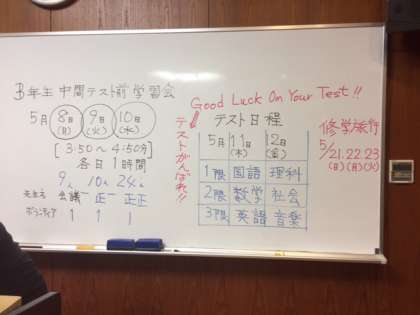 3年生 中間テスト前 学習会
5月 8日 9日 10日
(月) (火) (水)
[3:50〜4:50分]
各日1時間
9人 10人 24人
先生方 会議 正一 正正
ボランティア 1 1 1
Good Luck On Your Test!!
テストがんばれ!!
テスト日程
5月11日 12日
(木) (金)
1限 国語 理科
2限 数学 社会
3限 英語 音楽
修学旅行
5/21.22.23
(日)(月)(火)